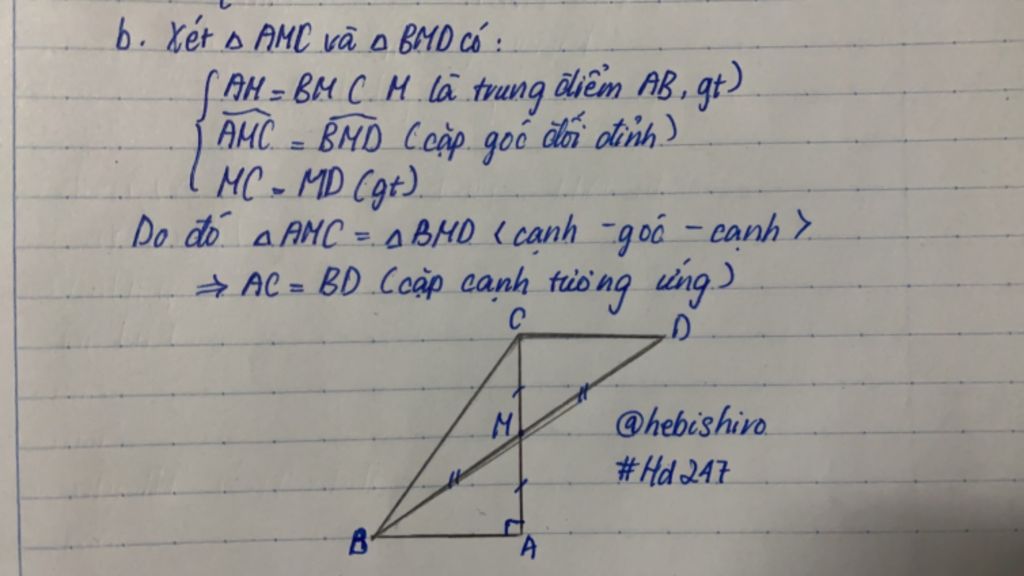 b. Xét △ AMC và △ BMD có:
AM = BM ( M là trung điểm AB, gt)
AMC = BMD (cặp góc đối đỉnh)
MC = MD (gt)
Do đó △ AMC = △ BMD <cạnh - góc - cạnh>
⇒ AC = BD (cặp cạnh tương ứng)
C D
M @hebishiro
#Hd247
B A